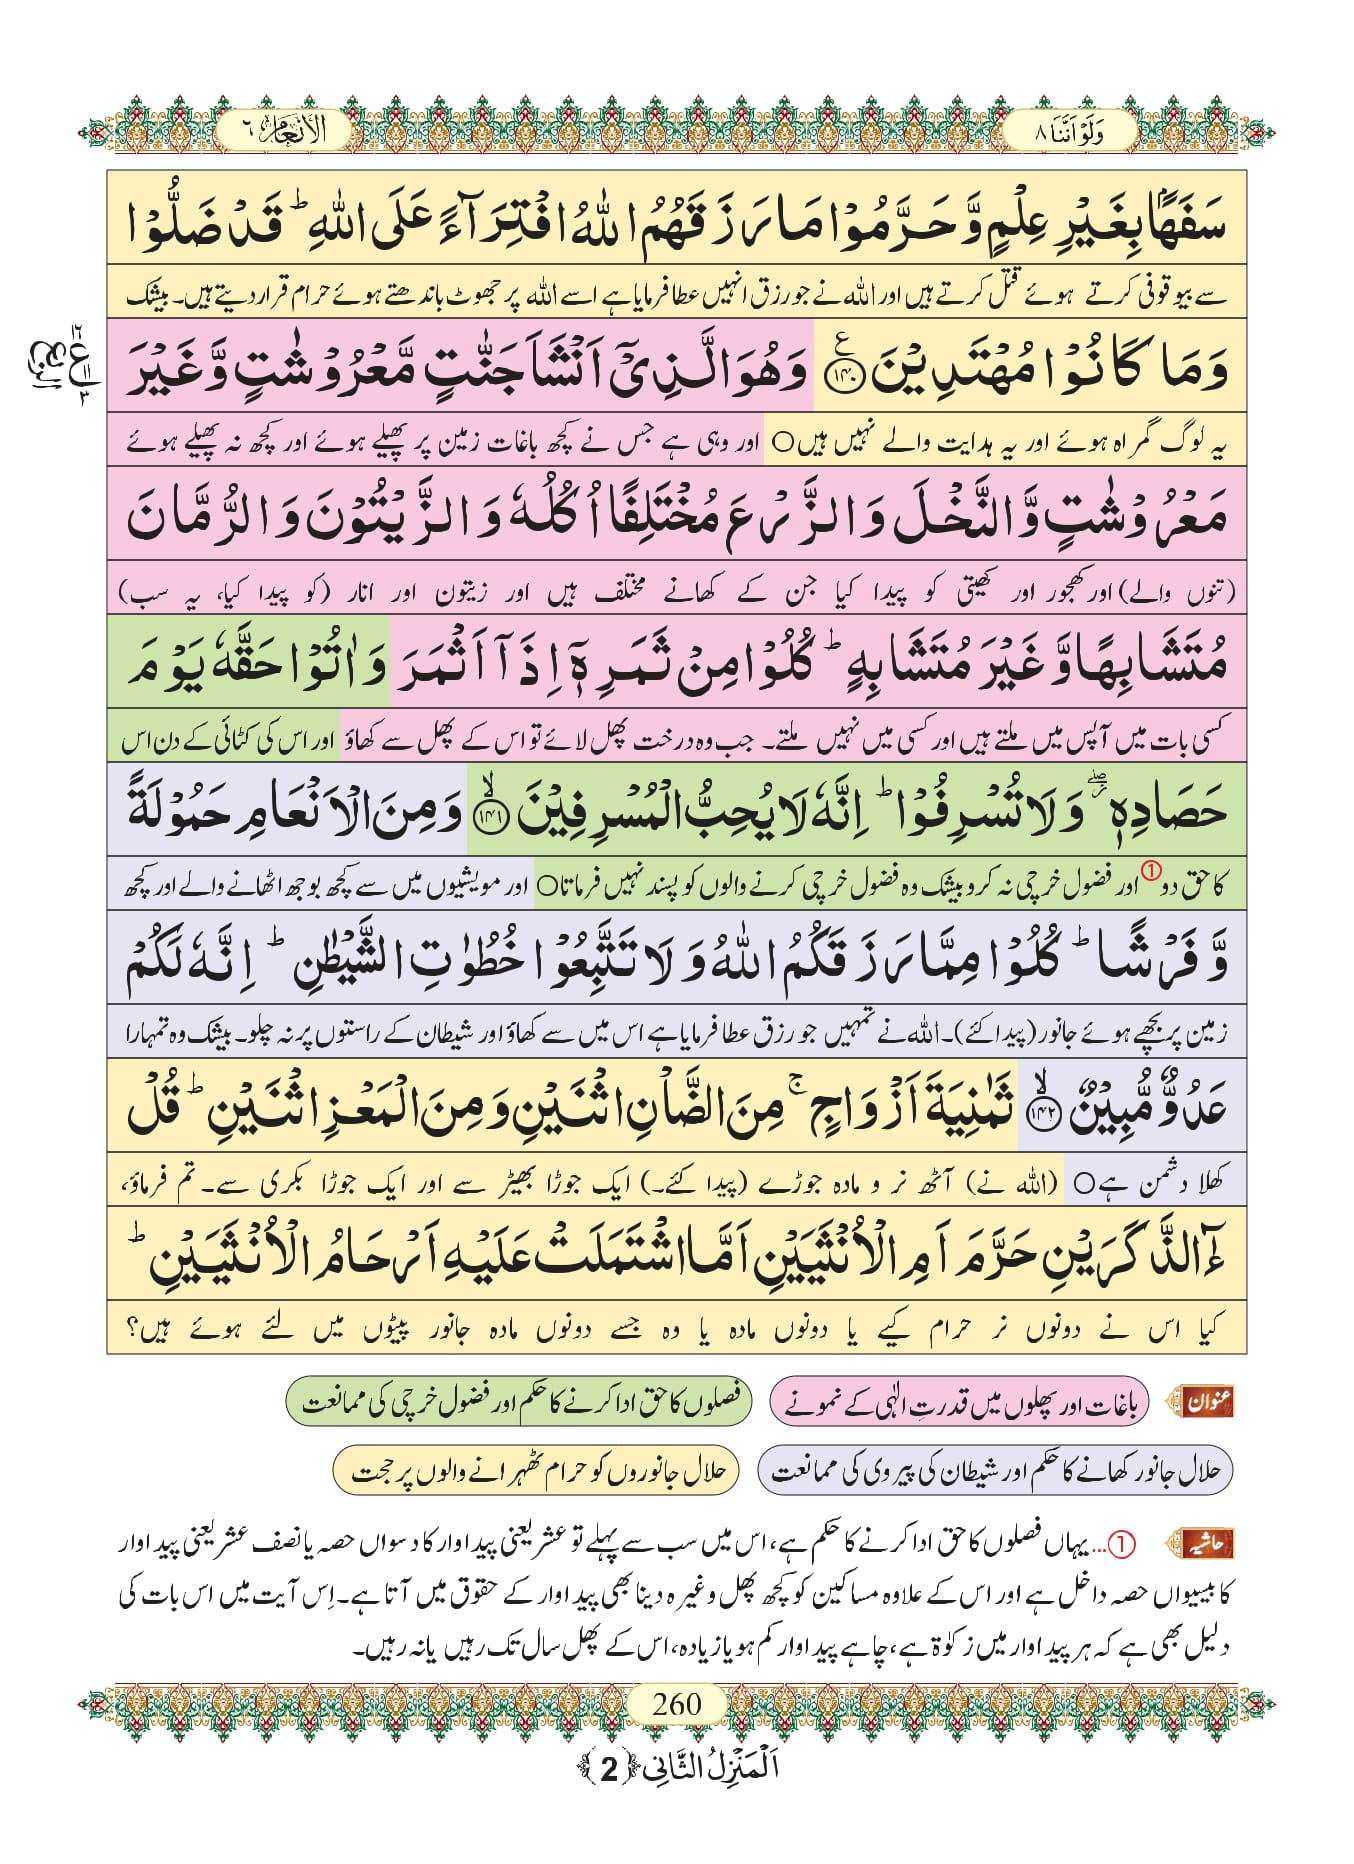 وَلَوْ اَنَّنَا ٨
الْاَنْعَام ٦
سَفَهًۢا بِغَیْرِ عِلْمٍ وَّ حَرَّمُوْا مَا رَزَقَهُمُ اللّٰهُ افْتِرَآءً عَلَى اللّٰهِؕ قَدْ ضَلُّوْا
سے بیوقوفی کرتے ہوئے قتل کرتے ہیں اور اللہ نے جو رزق انہیں عطا فرمایا ہے اسے اللہ پر جھوٹ باندھتے ہوئے حرام قرار دیتے ہیں۔ بیشک
وَ مَا كَانُوْا مُهْتَدِیْنَ۠ ﴿۱۴۰﴾ وَ هُوَ الَّذِیْۤ اَنْشَاَ جَنّٰتٍ مَّعْرُوْشٰتٍ وَّ غَیْرَ
یہ لوگ گمراہ ہوئے اور یہ ہدایت والے نہیں ہیں○ اور وہی ہے جس نے کچھ باغات زمین پر پھیلے ہوئے اور کچھ نہ پھیلے ہوئے
مَعْرُوْشٰتٍ وَّ النَّخْلَ وَ الزَّرْعَ مُخْتَلِفًا اُكُلُهٗ وَ الزَّیْتُوْنَ وَ الرُّمَّانَ
(تنوں والے) اور کھجور اور کھیتی کو پیدا کیا جن کے کھانے مختلف ہیں اور زیتون اور انار (کو پیدا کیا، یہ سب)
مُتَشَابِهًا وَّ غَیْرَ مُتَشَابِهٍؕ كُلُوْا مِنْ ثَمَرِهٖۤ اِذَاۤ اَثْمَرَ وَ اٰتُوْا حَقَّهٗ یَوْمَ
کسی بات میں آپس میں ملتے ہیں اور کسی میں نہیں ملتے۔ جب وہ درخت پھل لائے تو اس کے پھل سے کھاؤ اور اس کی کٹائی کے دن اس
حَصَادِهٖ ﳲ وَ لَا تُسْرِفُوْاؕ اِنَّهٗ لَا یُحِبُّ الْمُسْرِفِیْنَۙ ﴿۱۴۱﴾ وَ مِنَ الْاَنْعَامِ حَمُوْلَةً
کا حق دو① اور فضول خرچی نہ کرو بیشک وہ فضول خرچی کرنے والوں کو پسند نہیں فرماتا○ اور مویشیوں میں سے کچھ بوجھ اٹھانے والے اور کچھ
وَّ فَرْشًاؕ كُلُوْا مِمَّا رَزَقَكُمُ اللّٰهُ وَ لَا تَتَّبِعُوْا خُطُوٰتِ الشَّیْطٰنِؕ اِنَّهٗ لَكُمْ
زمین پر بچھے ہوئے جانور (پیدا کئے)۔ اللہ نے تمہیں جو رزق عطا فرمایا ہے اس میں سے کھاؤ اور شیطان کے راستوں پر نہ چلو۔ بیشک وہ تمہارا
عَدُوٌّ مُّبِیْنٌۙ ﴿۱۴۲﴾ ثَمٰنِیَةَ اَزْوَاجٍۚ مِنَ الضَّاْنِ اثْنَیْنِ وَ مِنَ الْمَعْزِ اثْنَیْنِؕ قُلْ
کھلا دشمن ہے○ (اللہ نے) آٹھ نر و مادہ جوڑے (پیدا کئے۔) ایک جوڑا بھیڑ سے اور ایک جوڑا بکری سے۔ تم فرماؤ،
ءٰٓالذَّكَرَیْنِ حَرَّمَ اَمِ الْاُنْثَیَیْنِ اَمَّا اشْتَمَلَتْ عَلَیْهِ اَرْحَامُ الْاُنْثَیَیْنِؕ
کیا اس نے دونوں نر حرام کیے یا دونوں مادہ یا وہ جسے دونوں مادہ جانور پیٹوں میں لئے ہوئے ہیں؟
عنوان باغات اور پھلوں میں قدرتِ الٰہی کے نمونے فصلوں کا حق ادا کرنے کا حکم اور فضول خرچی کی ممانعت
حلال جانور کھانے کا حکم اور شیطان کی پیروی کی ممانعت حلال جانوروں کو حرام ٹھہرانے والوں پر حجت
حاشیہ ①... یہاں فصلوں کا حق ادا کرنے کا حکم ہے، اس میں سب سے پہلے تو عشر یعنی پیداوار کا دسواں حصہ یا نصف عشر یعنی پیداوار
کا بیسیواں حصہ داخل ہے اور اس کے علاوہ مساکین کو کچھ پھل وغیرہ دینا بھی پیداوار کے حقوق میں آتا ہے۔ اِس آیت میں اس بات کی
دلیل بھی ہے کہ ہر پیداوار میں زکوٰۃ ہے، چاہے پیداوار کم ہو یا زیادہ، اس کے پھل سال تک رہیں یا نہ رہیں۔
260
اَلْمَنْزِلُ الثَّانِی ﴿2﴾